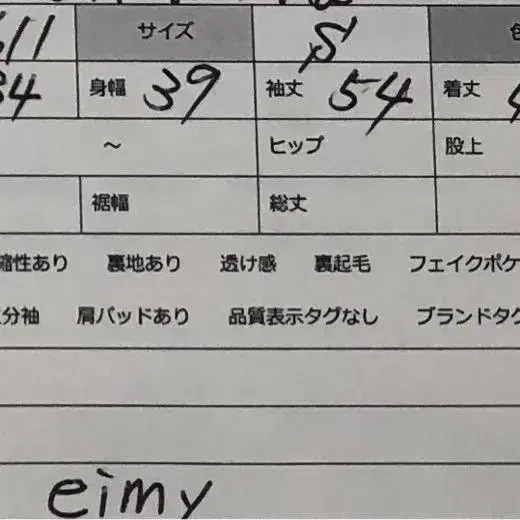 611 サイズ S
34 身幅 39 袖丈 54 着丈
～ ヒップ 股上
裾幅 総丈
縮性あり 裏地あり 透け感 裏起毛 フェイクポケ
分袖 肩パッドあり 品質表示タグなし ブランドタグ
eimy